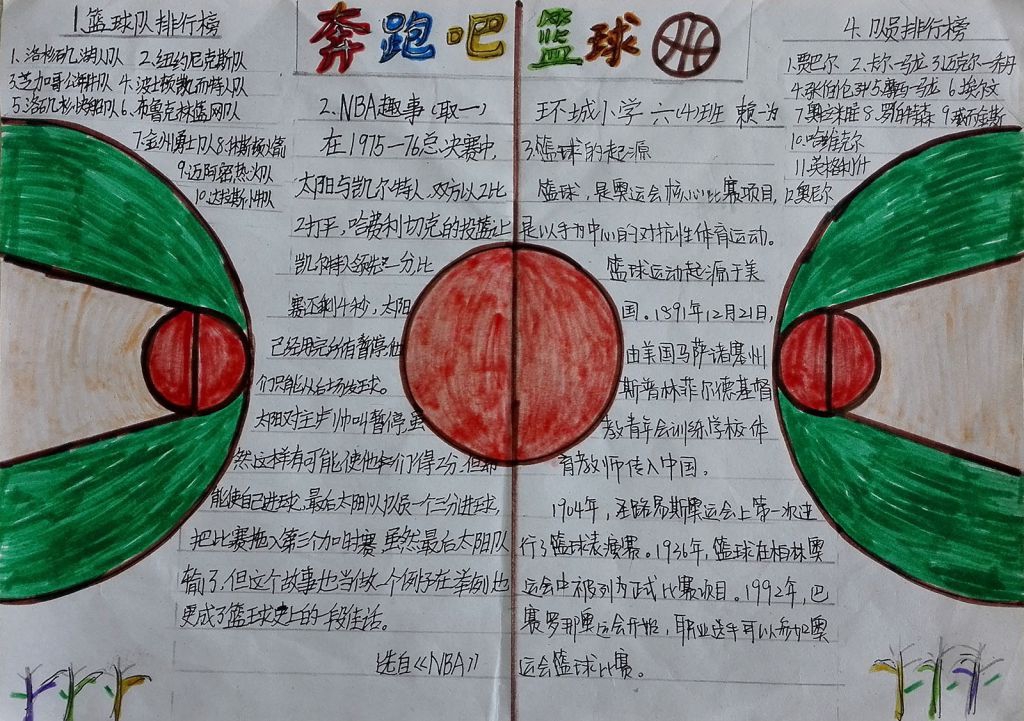 奔跑吧篮球
1.篮球队排行榜
1.洛杉矶湖人队 2.纽约尼克斯队
3.芝加哥公牛队 4.波士顿凯而特人队
5.洛矶杉快船队 6.布鲁克林篮网队
7.金州勇士队 8.休斯顿火箭
9.迈阿密热火队
10.达拉斯小牛队
2.NBA趣事(取一)
在1975—76总决赛中,
太阳与凯尔特人,双方以2比
2打平,哈费利切克的投篮让
凯尔特队领先一分,比
赛还剩4秒,太阳
已经用完所有暂停,他
们只能从后场发球。
太阳对主帅叫暂停,虽
然这样有可能使他们得2分,但却
能使自己进球,最后太阳队队员一个三分进球,
把比赛拖入第三个加时赛虽然最后太阳队
输了,但这个故事也当做一个例子在举例,也
更成了篮球史上的一段佳话。
选自《NBA》
环城小学 六(4)班 赖一为
3.篮球的起源
篮球,是奥运会核心比赛项目,
是以手为中心的对抗性体育运动。
篮球运动起源于美
国。1891年12月21日,
由美国马萨诸塞州
斯普林菲尔德基督
教青年会训练学校体
育教师传入中国。
1904年,圣路易斯奥运会上第一次进
行了篮球表演赛。1936年,篮球在柏林奥
运会中被列为正式比赛项目。1992年,巴
赛罗那奥运会开始,职业选手可以参加奥
运会篮球比赛。
4.队员排行榜
1.贾巴尔 2.卡尔-马龙 3.迈克尔-乔丹
4.张伯伦 5.摩西-马龙 6.埃尔文
7.奥拉朱旺 8.罗伯特森 9.威而金斯
10.哈维克尔
11.英格利什
12.奥尼尔